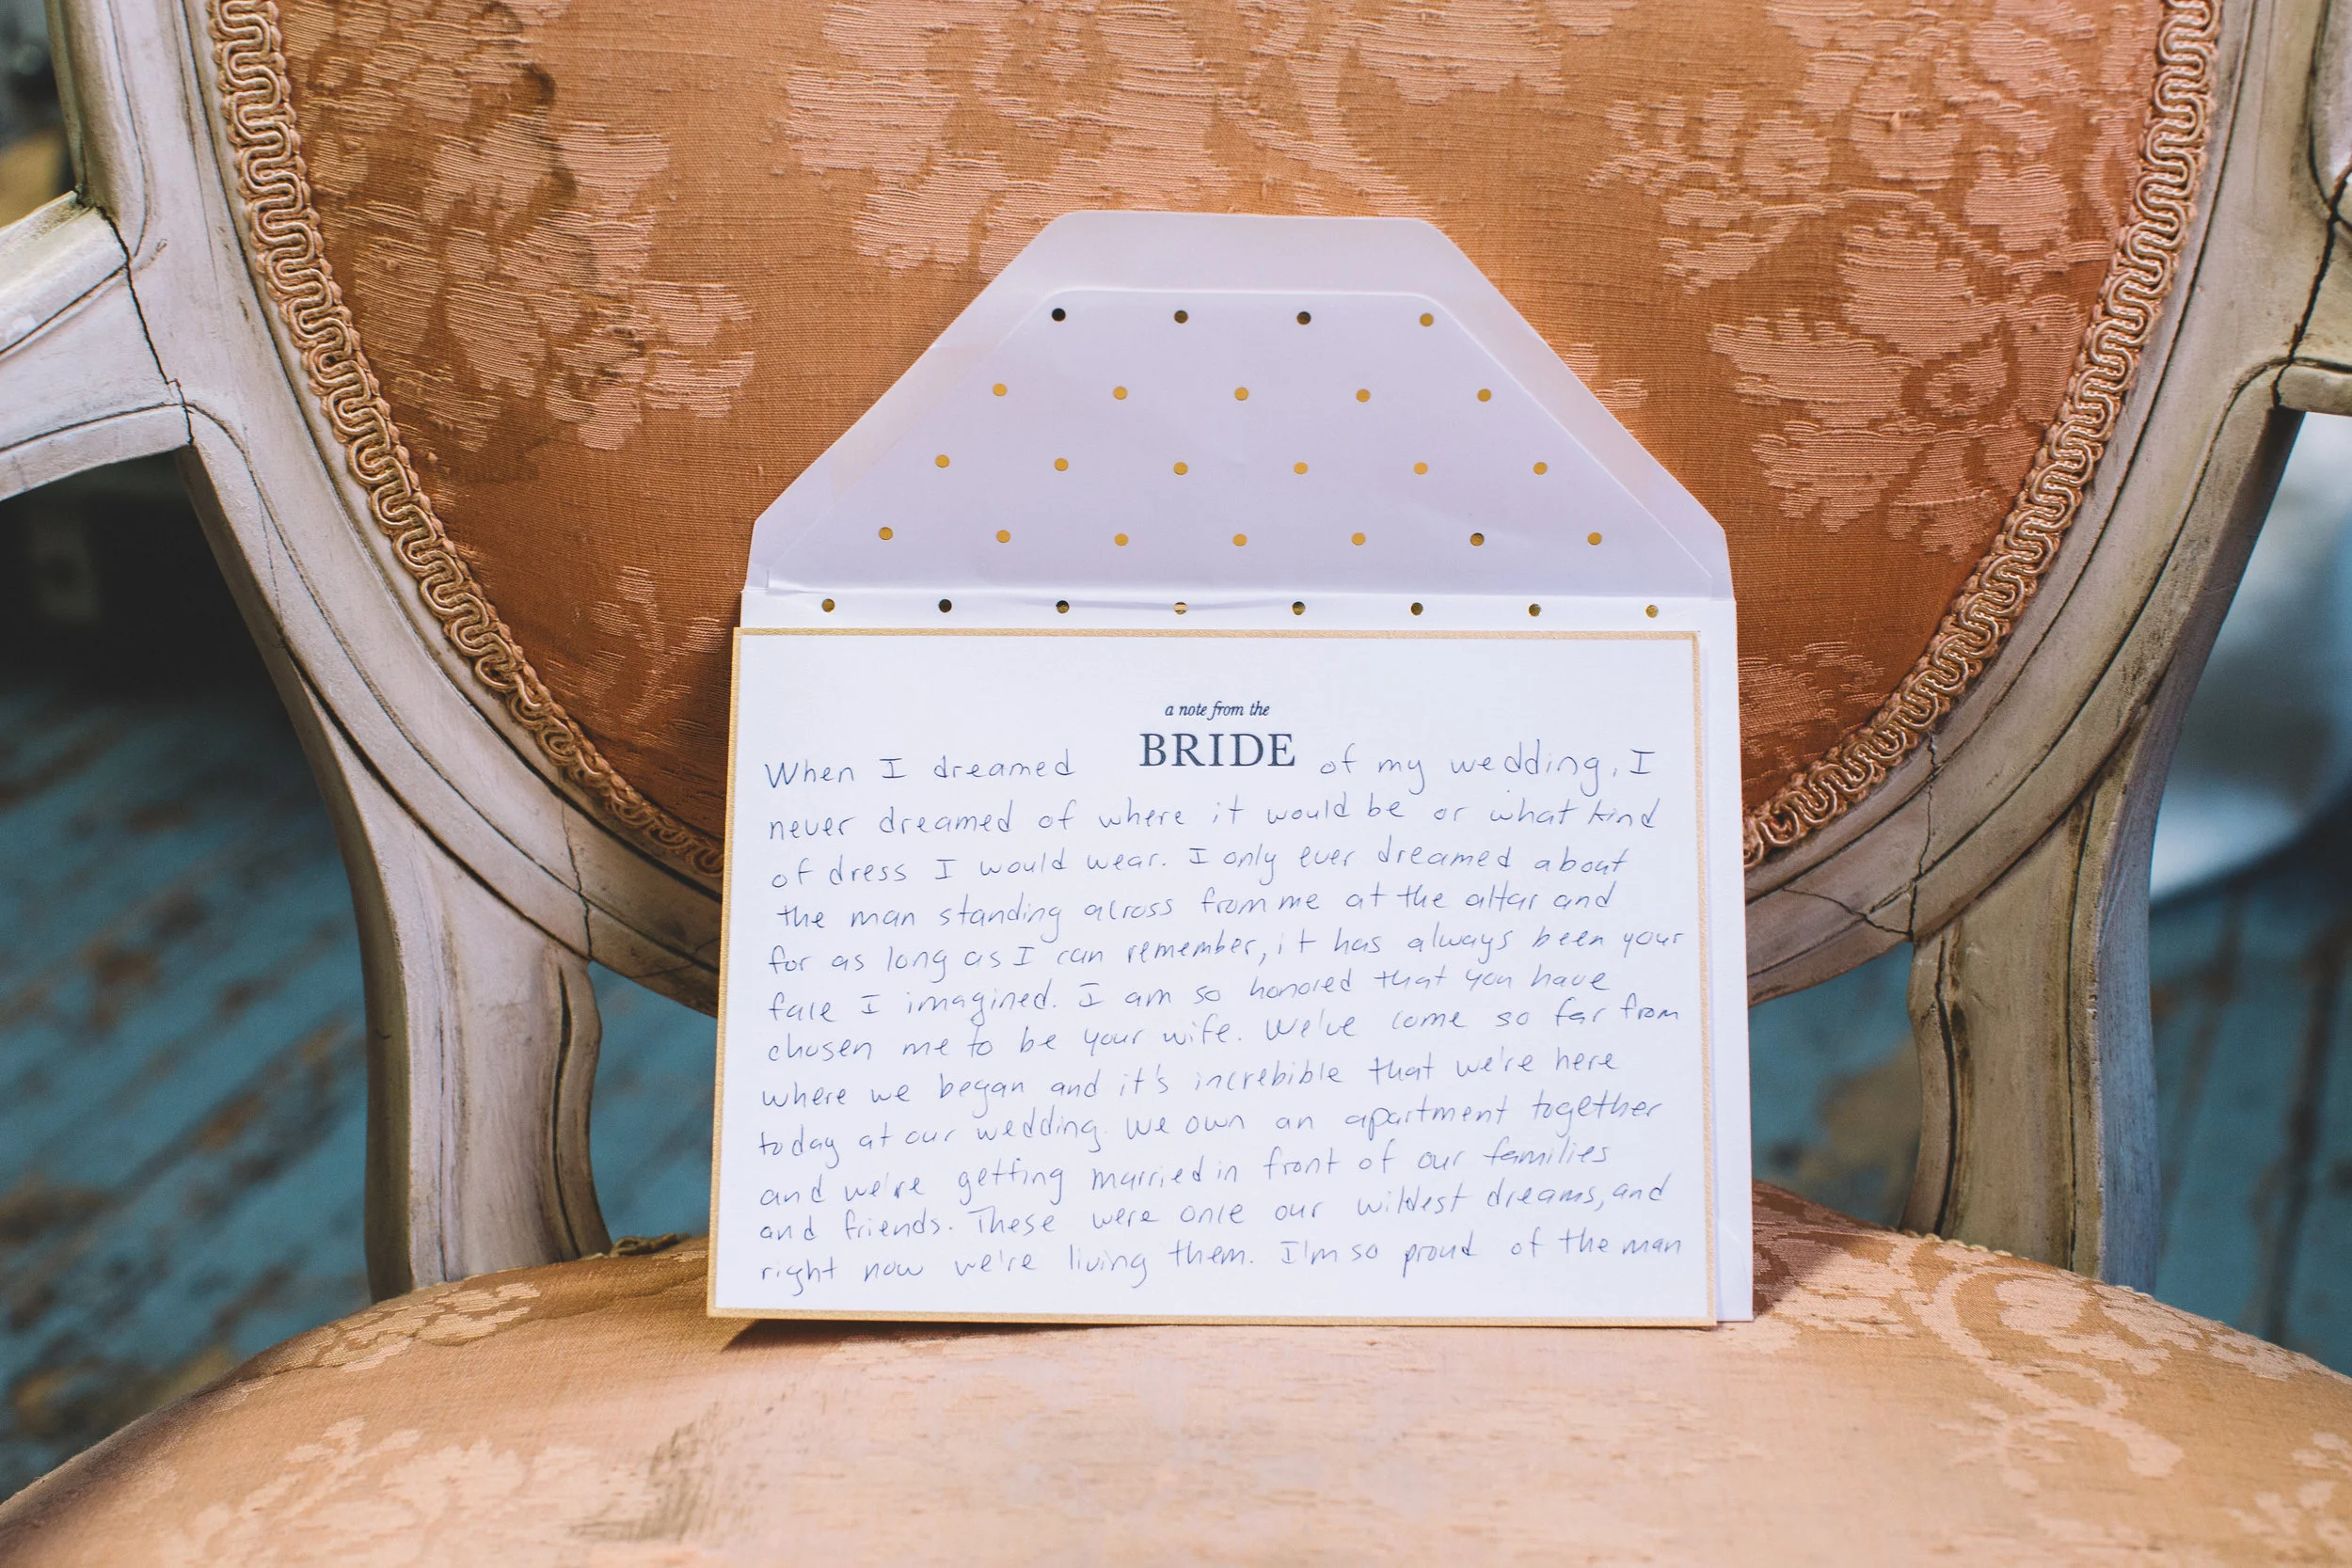 a note from the
BRIDE
When I dreamed of my wedding, I
never dreamed of where it would be or what kind
of dress I would wear. I only ever dreamed about
the man standing across from me at the altar and
for as long as I can remember, it has always been your
face I imagined. I am so honored that you have
chosen me to be your wife. We've come so far from
where we began and it's increbible that we're here
today at our wedding. We own an apartment together
and we're getting married in front of our families
and friends. These were once our wildest dreams, and
right now we're living them. I'm so proud of the man